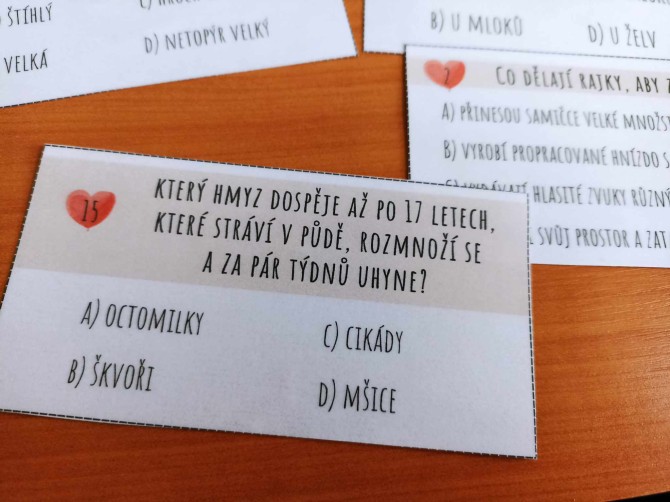 ŠTÍHLÝ
VELKÁ
D) NETOPÝR VELKÝ
B) U MLOKŮ
D) U ŽELV
2
CO DĚLAJÍ RAJKY, ABY
A) PŘINESOU SAMIČCE VELKÉ
B) VYROBÍ PROPRACOVANÉ HNÍZDO
HLASITÉ ZVUKY
SVŮJ PROSTOR A
15
KTERÝ HMYZ DOSPĚJE AŽ PO 17 LETECH,
KTERÉ STRÁVÍ V PŮDĚ, ROZMNOŽÍ SE
A ZA PÁR TÝDNŮ UHYNE?
A) OCTOMILKY
B) ŠKVOŘI
C) CIKÁDY
D) MŠICE